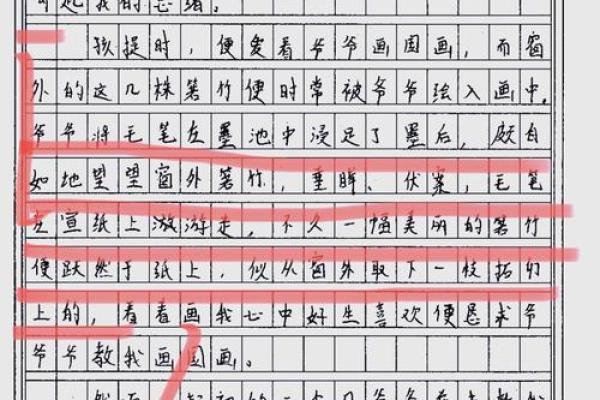 起我的思绪。
孩提时，便爱看爷爷画国画，而窗
外的这几株箬竹便时常被爷爷绘入画中。
爷爷将毛笔在墨池中浸足了墨后，颇自
如地望望窗外箬竹，垂眸、伏案，毛笔
在宣纸上游游走，不久一幅美丽的箬竹
便跃然于纸上，似从窗外取下一枝拓印
上的，看着画我心中好生喜欢便恳求爷
爷爷教我画国画。